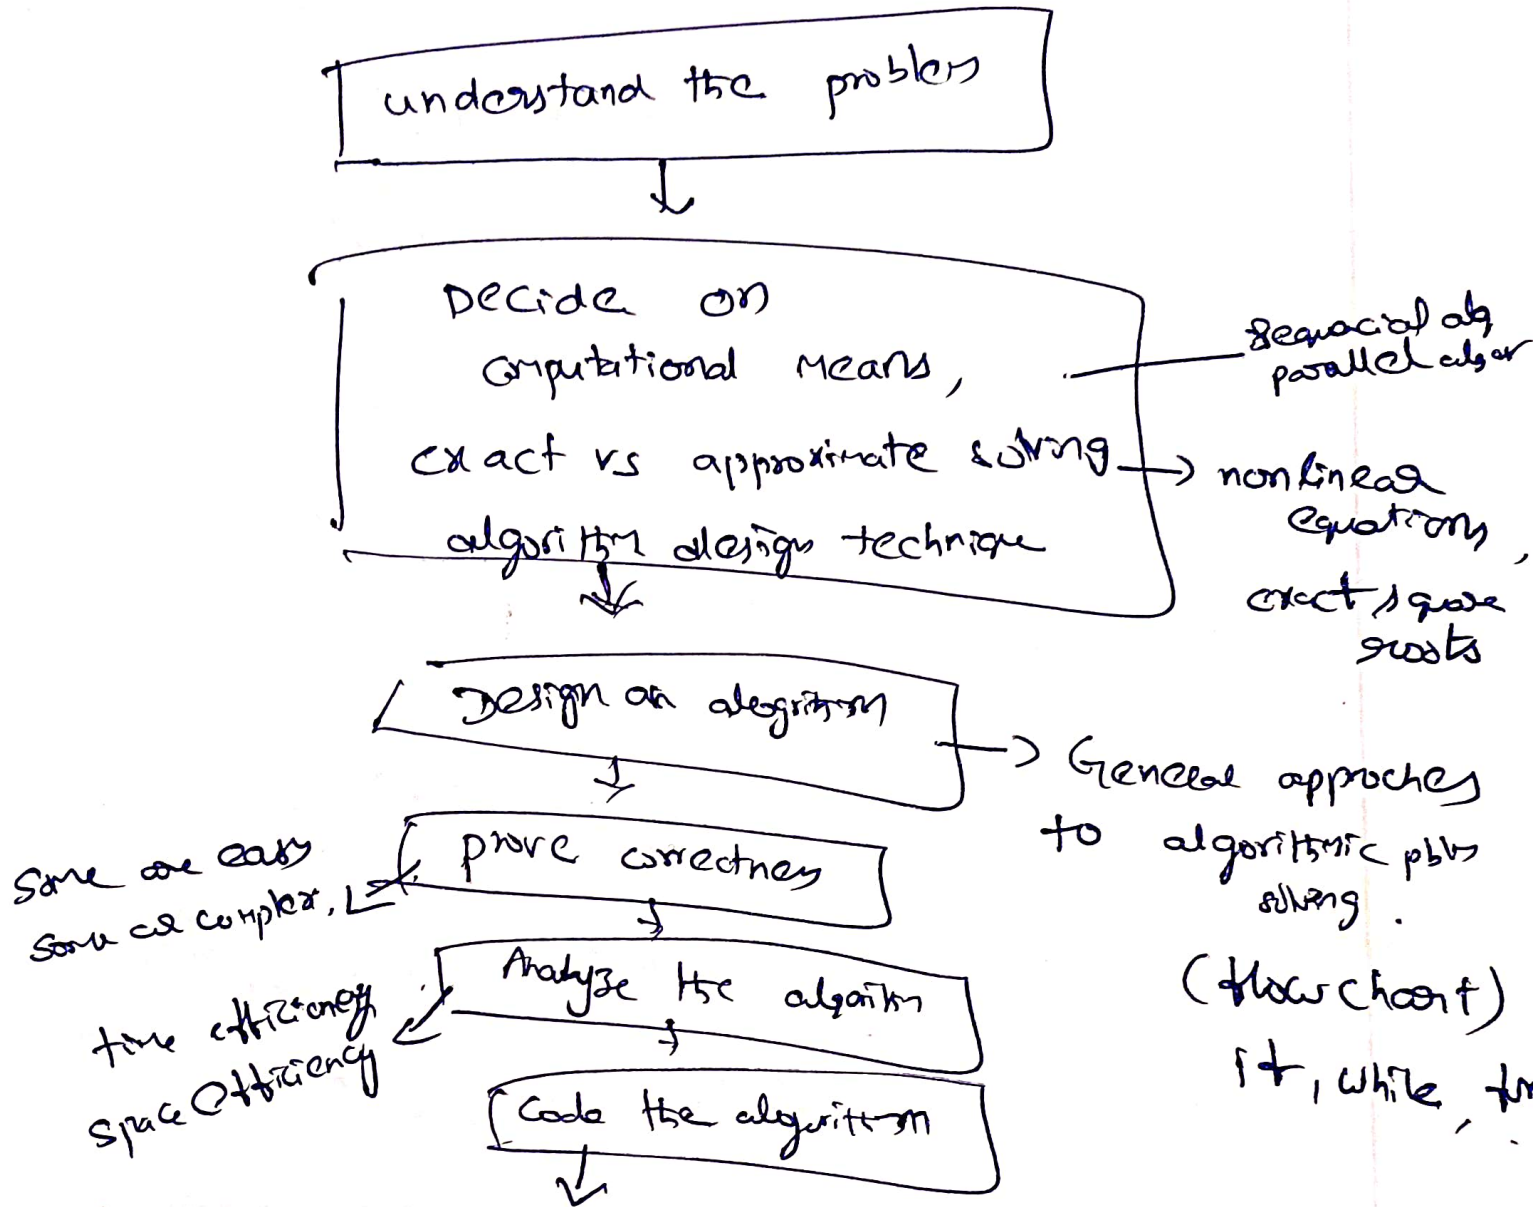 understand the problem
Decide on
computational means,
exact vs approximate solving
algorithm design technique
sequacial alg
parallel algor
non linear
equations,
exact square
roots
Design an alogrithm
General approches
to algorithmic pbm
solving.
(flow chart)
if, while, for
prove correctness
Some are easy
some are complex.
Analyze the algorithm
time efficiency
space efficiency
Code the algorithm